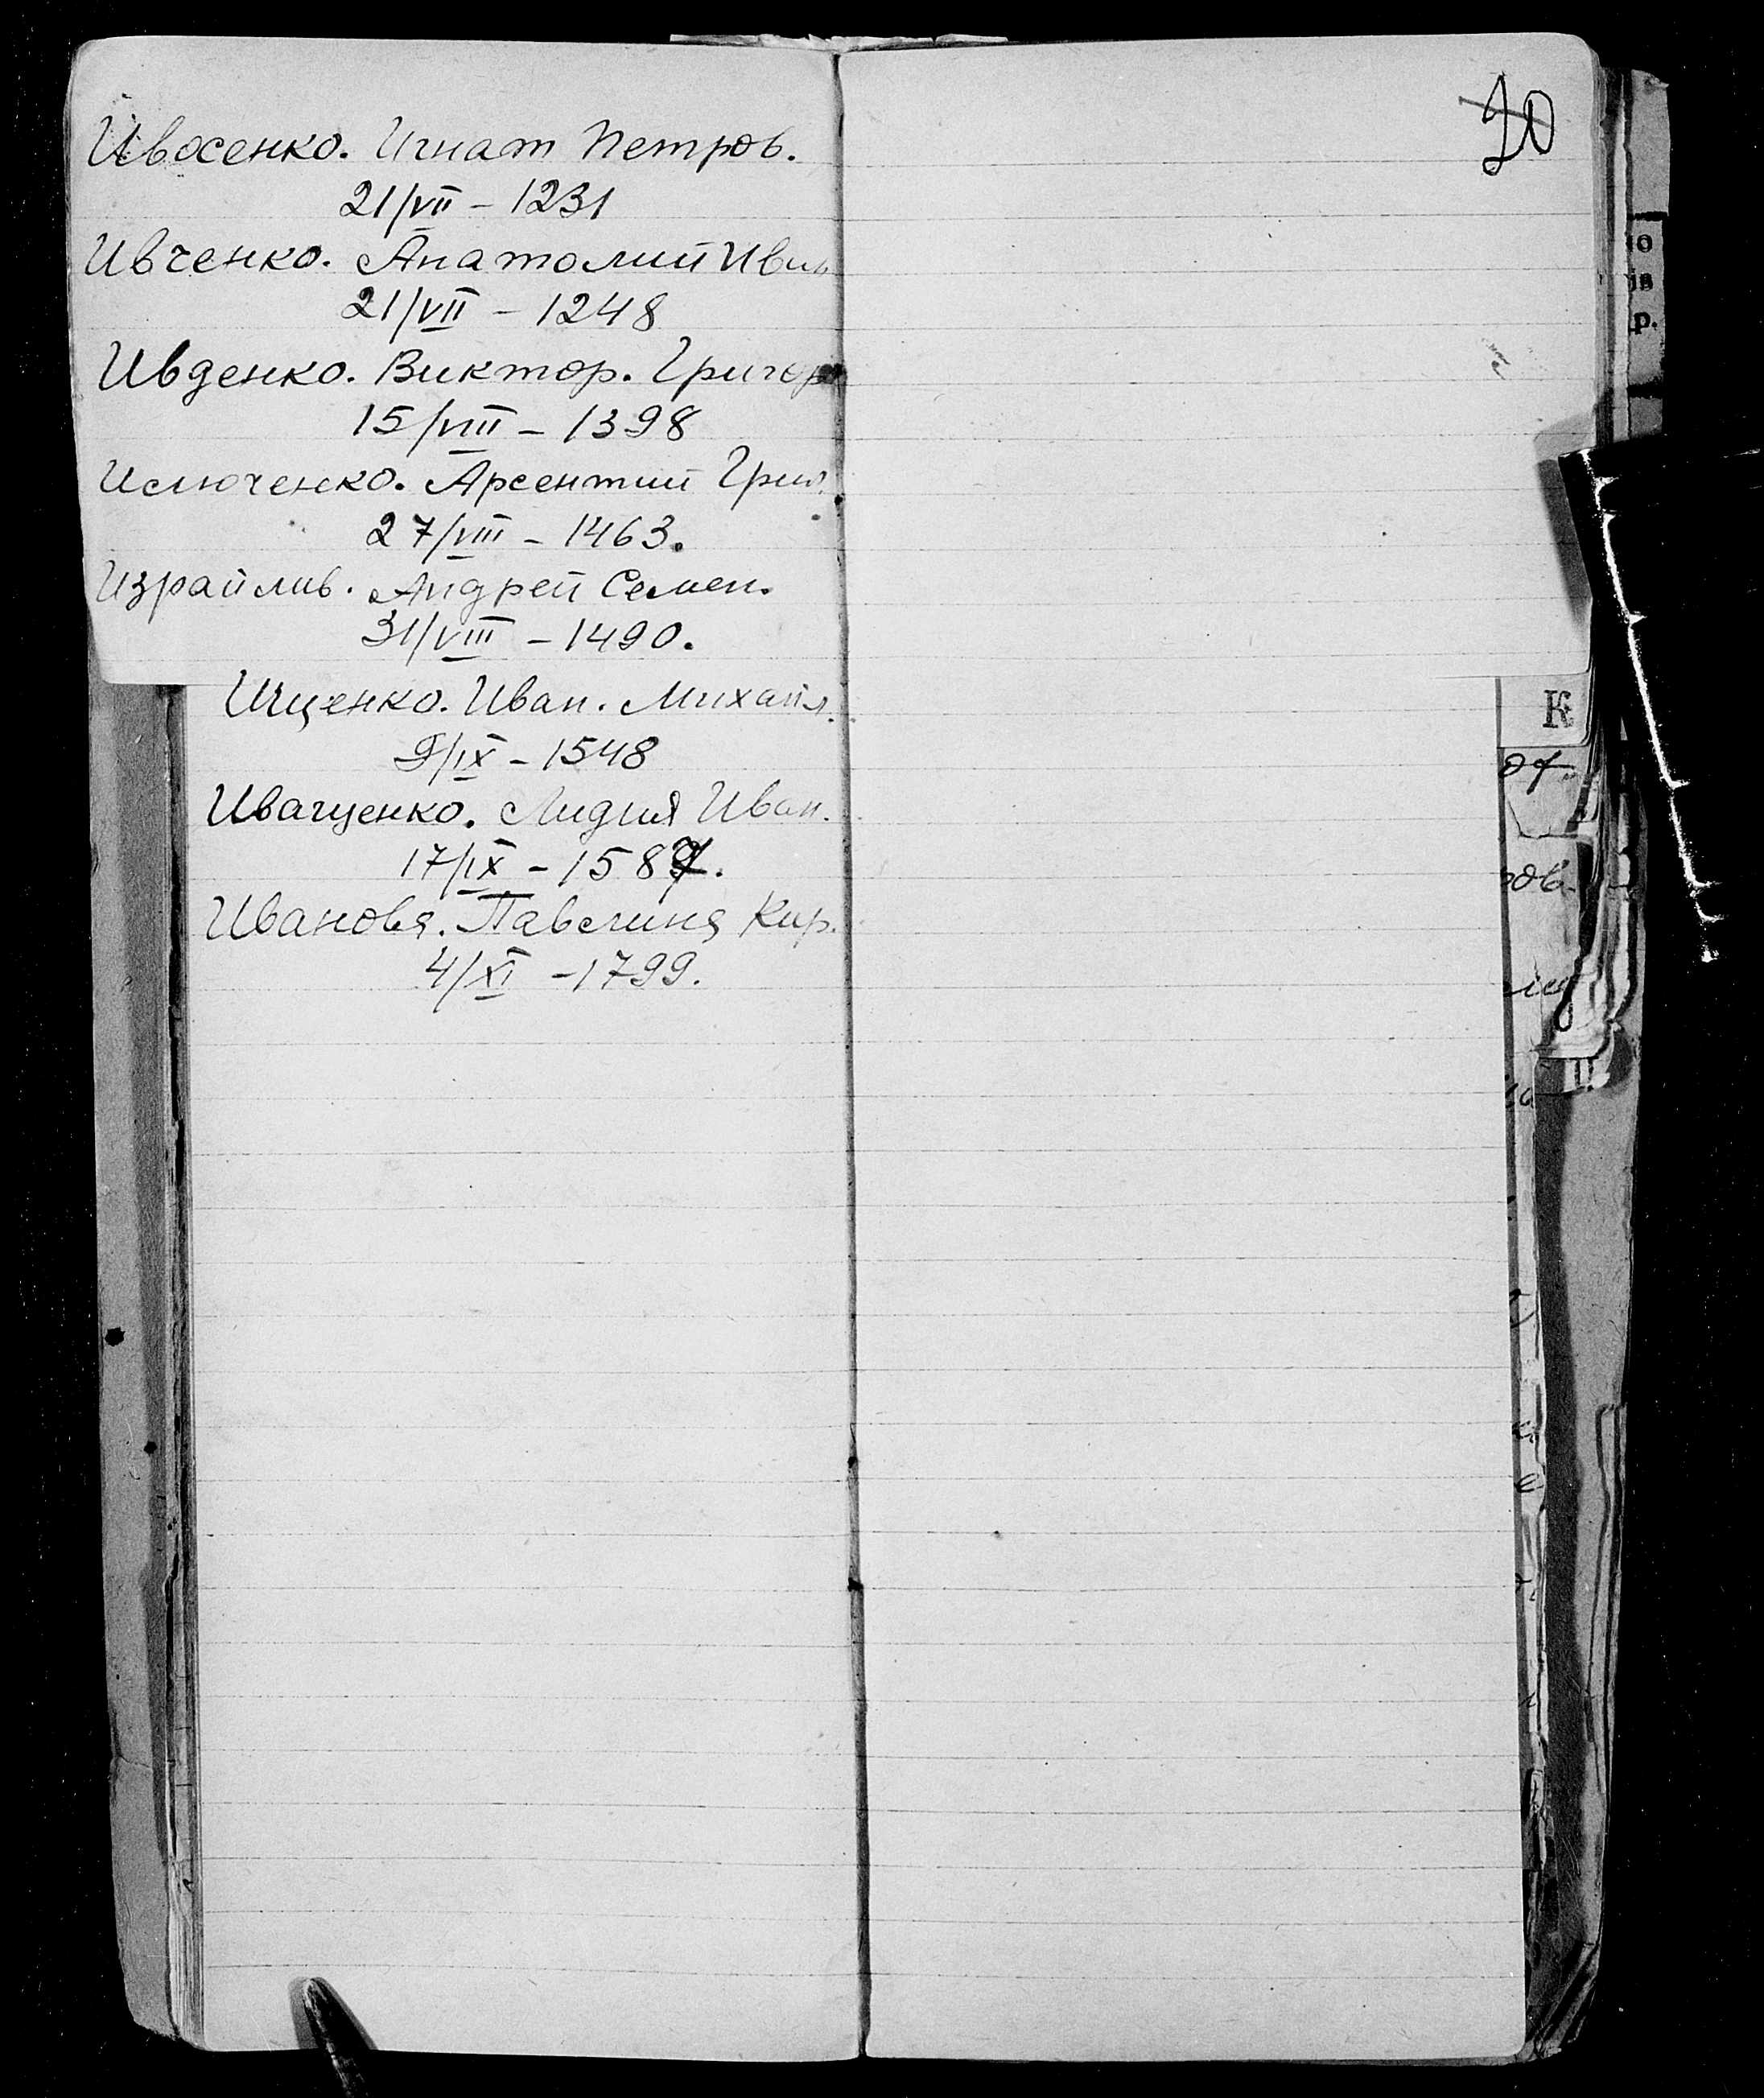 Ивосенко. Игнат Петров.
21/VII - 1231
Ивченко. Анатолий Иван
21/VII - 1248
Ивденко. Виктор. Григор
15/VIII - 1398
Ислюченко. Арсентий Григ.
27/VIII - 1463.
Израйлив. Андрей Семен.
31/VIII - 1490.
Ищенко. Иван. Михайл.
9/IX - 1548
Иващенко. Лидия Иван.
17/IX - 1587.
Иванова. Павелина Кир.
4/XI - 1799.
20
К